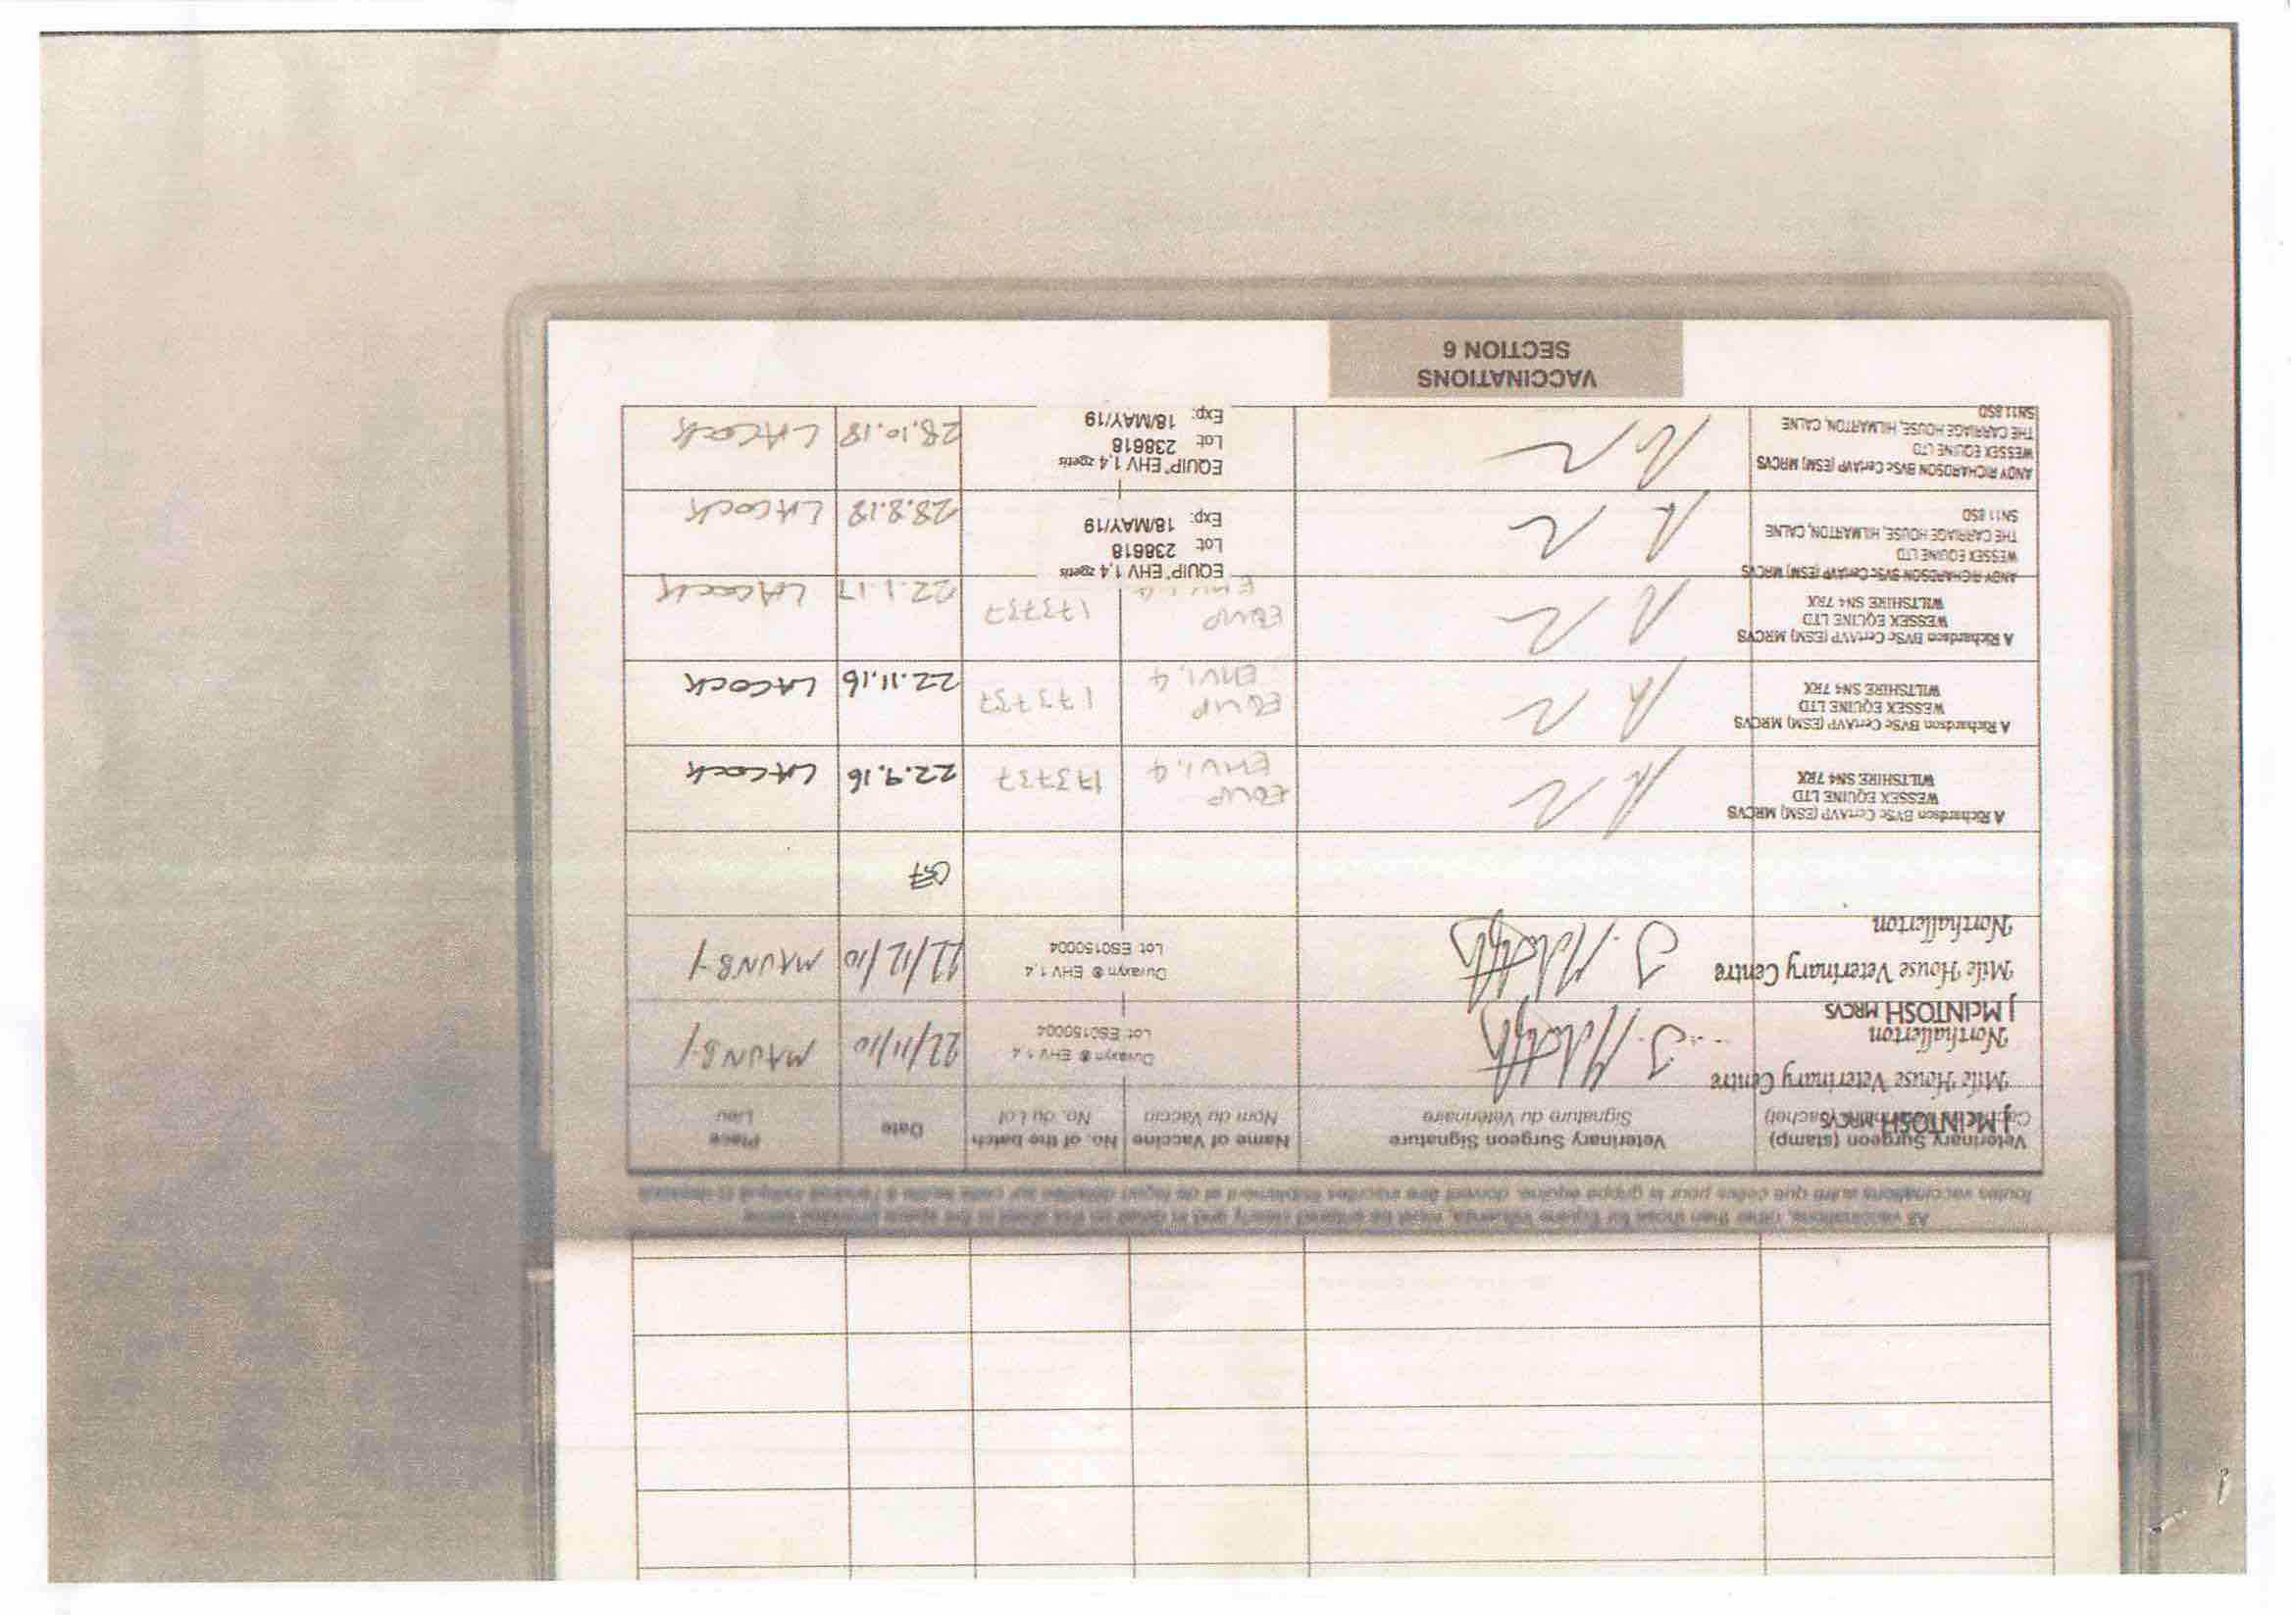 All vaccinations, other than those for Equine Influenza, must be entered clearly and in detail on this sheet in the space provided below
Toutes vaccinations autre que celles pour la grippe équine, doivent être inscrites lisiblement et de façon détaillée sur cette feuille à l'endroit indiqué ci-dessous
Veterinary Surgeon (stamp) Veterinary Surgeon Signature Name of Vaccine No. of the batch Date Place
(cachet) Signature du Vétérinaire Nom du Vaccin No. du Lot Lieu
J McINTOSH MRCVS
Mile House Veterinary Centre
Northallerton
Duvaxyn ® EHV 1,4
Lot ES0150004
22/11/10 MAUNBY
J McINTOSH MRCVS
Mile House Veterinary Centre
Northallerton
Duvaxyn ® EHV 1,4
Lot ES0150004
22/12/10 MAUNBY
A Richardson BVSc CertAVP (ESM) MRCVS
WESSEX EQUINE LTD
WILTSHIRE SN4 7RX
EQUIP
EHV1,4
173737 22.9.16 LACOCK
A Richardson BVSc CertAVP (ESM) MRCVS
WESSEX EQUINE LTD
WILTSHIRE SN4 7RX
EQUIP
EHV1,4
173737 22.11.16 LACOCK
A Richardson BVSc CertAVP (ESM) MRCVS
WESSEX EQUINE LTD
WILTSHIRE SN4 7RX
EQUIP
EHV1,4
173737 22.1.17 LACOCK
ANDY RICHARDSON BVSc CertAVP (ESM) MRCVS
WESSEX EQUINE LTD
THE CARRIAGE HOUSE, HILMARTON, CALNE
SN11 8SD
EQUIP® EHV 1,4 zoetis
Lot: 238618
Exp: 18/MAY/19
28.8.18 LACOCK
ANDY RICHARDSON BVSc CertAVP (ESM) MRCVS
WESSEX EQUINE LTD
THE CARRIAGE HOUSE, HILMARTON, CALNE
SN11 8SD
EQUIP® EHV 1,4 zoetis
Lot: 238618
Exp: 18/MAY/19
28.10.18 LACOCK
VACCINATIONS
SECTION 6